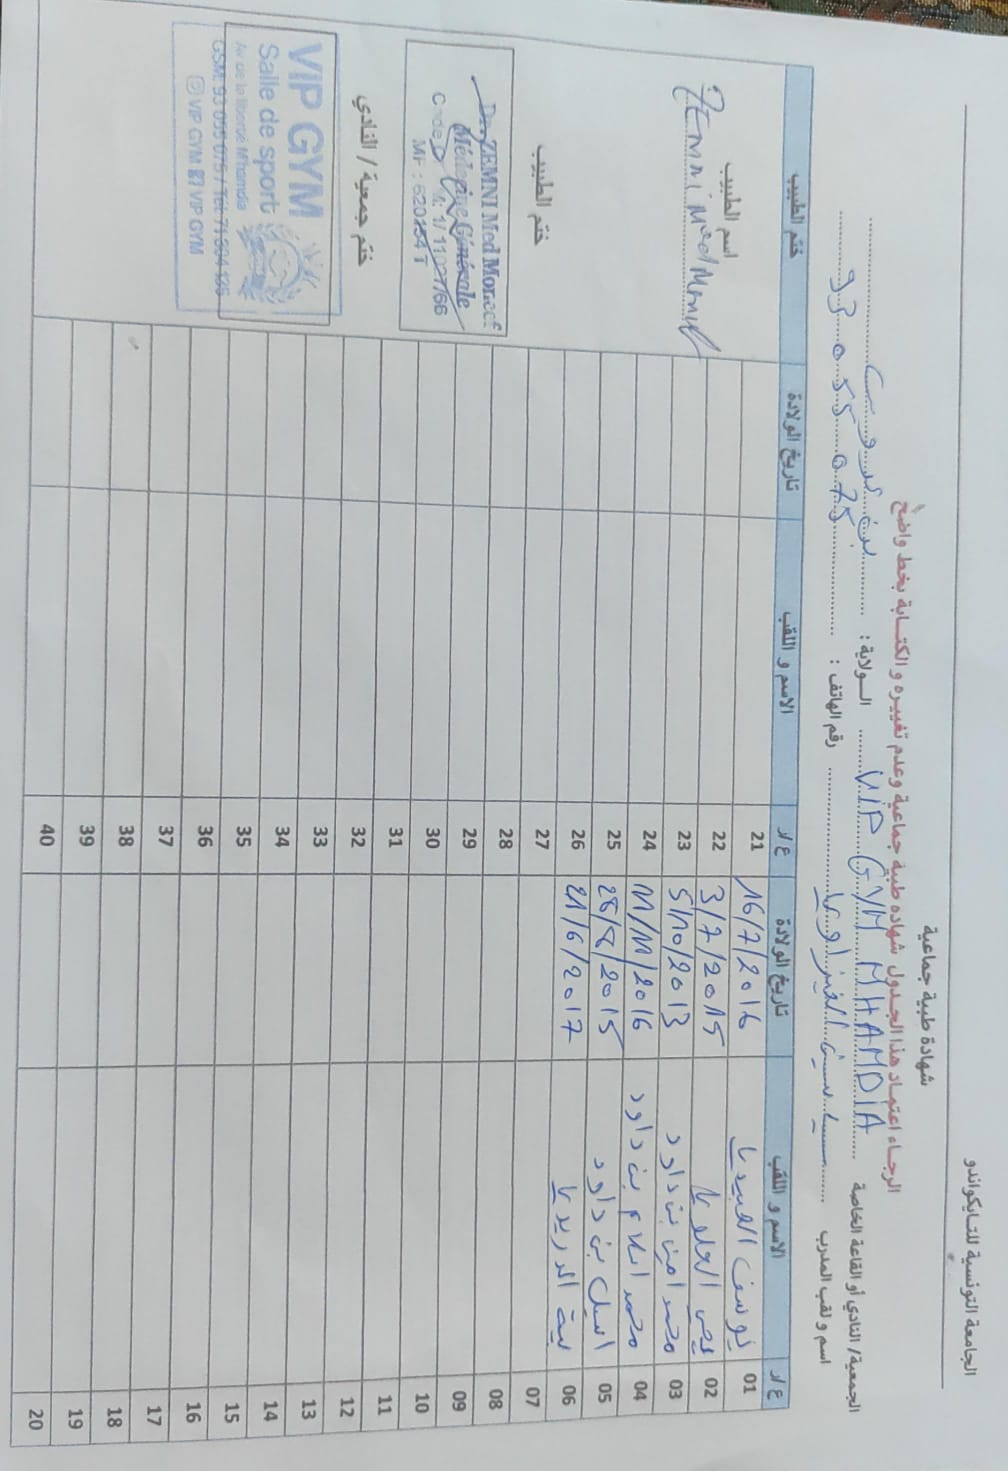 الجامعة التونسية للتايكواندو
شهادة طبية جماعية
الرجاء اعتماد هذا الجدول شهادة طبية جماعية وعدم تغييره والكتابة بخط واضح
الجمعية/ النادي أو القاعة الخاصة VIP GYM MHAMDIA الولاية : بن عروس
اسم و لقب المدرب ياسين رقم الهاتف : 93 055 075
ع/ر الاسم و اللقب تاريخ الولادة ع/ر الاسم و اللقب تاريخ الولادة ختم الطبيب
01 يوسف العبيدي 16/7/2016 21
02 يحي العلوي 3/7/2015 22
03 محمد امين بن داود 5/10/2013 23
04 محمد اسلام بن داود 11/11/2016 24
05 اسيل بن داود 28/8/2015 25
06 بية الدريدي 21/6/2017 26
07 27
08 28
09 29
10 30
11 31
12 32
13 33
14 34
15 35
16 36
17 37
18 38
19 39
20 40
اسم الطبيب
Zemni Med Moncef
ختم الطبيب
Dr. ZEMNI Med Moncef
Médecine Générale
ختم جمعية / النادي
VIP GYM
Salle de sport
Av de la liberté Mhamdia
GSM: 93 055 075 / Tél:
VIP GYM VIP GYM